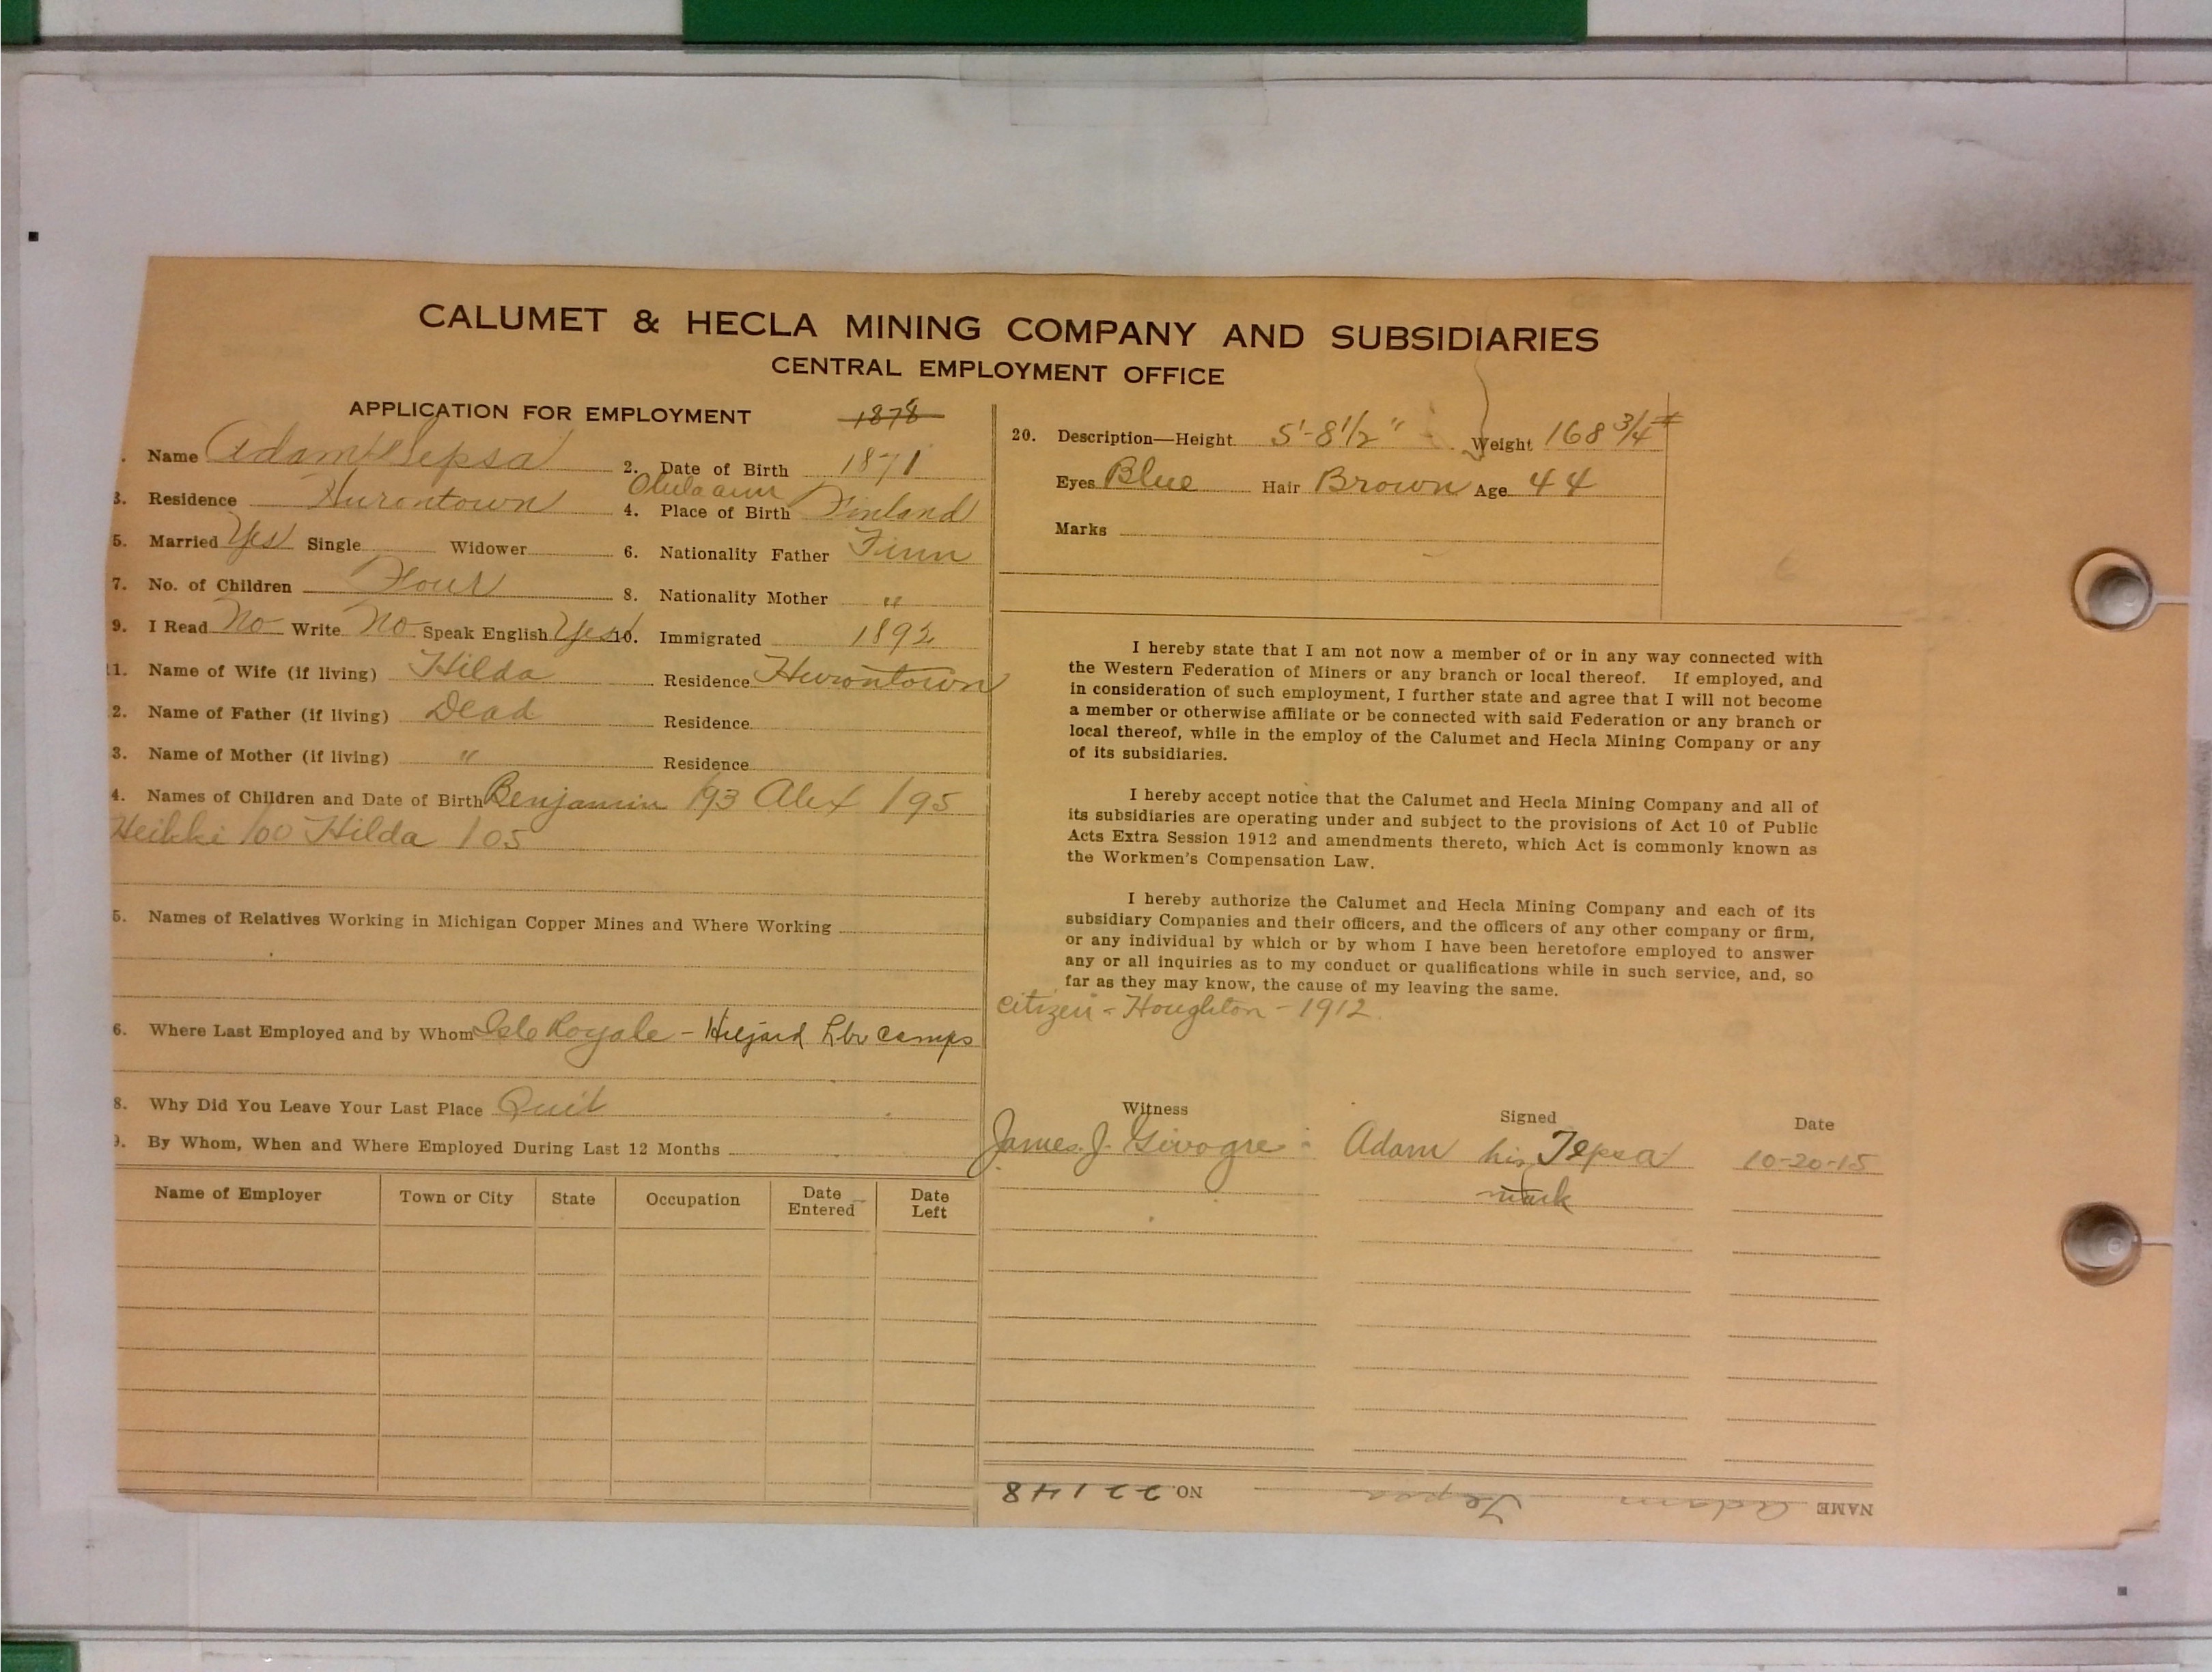 CALUMET & HECLA MINING COMPANY AND SUBSIDIARIES
CENTRAL EMPLOYMENT OFFICE
APPLICATION FOR EMPLOYMENT 1878
. Name Adam Tepsa 2. Date of Birth 1871
3. Residence Hurontown 4. Place of Birth Finland
5. Married Yes Single Widower 6. Nationality Father Finn
7. No. of Children Four 8. Nationality Mother "
9. I Read No Write No Speak English Yes 10. Immigrated 1892
11. Name of Wife (if living) Hilda Residence Hurontown
2. Name of Father (if living) Dead Residence
3. Name of Mother (if living) " Residence
4. Names of Children and Date of Birth Benjamin /93 Alex /95
Heikki /00 Hilda /05
5. Names of Relatives Working in Michigan Copper Mines and Where Working
6. Where Last Employed and by Whom Isle Royale - Lbr camps
8. Why Did You Leave Your Last Place Quit
9. By Whom, When and Where Employed During Last 12 Months
Name of Employer Town or City State Occupation Date Entered Date Left
20. Description—Height 5'-8 1/2" Weight 168 3/4 #
Eyes Blue Hair Brown Age 44
Marks
I hereby state that I am not now a member of or in any way connected with
the Western Federation of Miners or any branch or local thereof. If employed, and
in consideration of such employment, I further state and agree that I will not become
a member or otherwise affiliate or be connected with said Federation or any branch or
local thereof, while in the employ of the Calumet and Hecla Mining Company or any
of its subsidiaries.
I hereby accept notice that the Calumet and Hecla Mining Company and all of
its subsidiaries are operating under and subject to the provisions of Act 10 of Public
Acts Extra Session 1912 and amendments thereto, which Act is commonly known as
the Workmen's Compensation Law.
I hereby authorize the Calumet and Hecla Mining Company and each of its
subsidiary Companies and their officers, and the officers of any other company or firm,
or any individual by which or by whom I have been heretofore employed to answer
any or all inquiries as to my conduct or qualifications while in such service, and, so
far as they may know, the cause of my leaving the same.
Citizen - Houghton - 1912.
Witness Signed Date
James J. Givogre Adam his Tepsa 10-20-15
mark
NAME Adam Tepsa NO. 22148